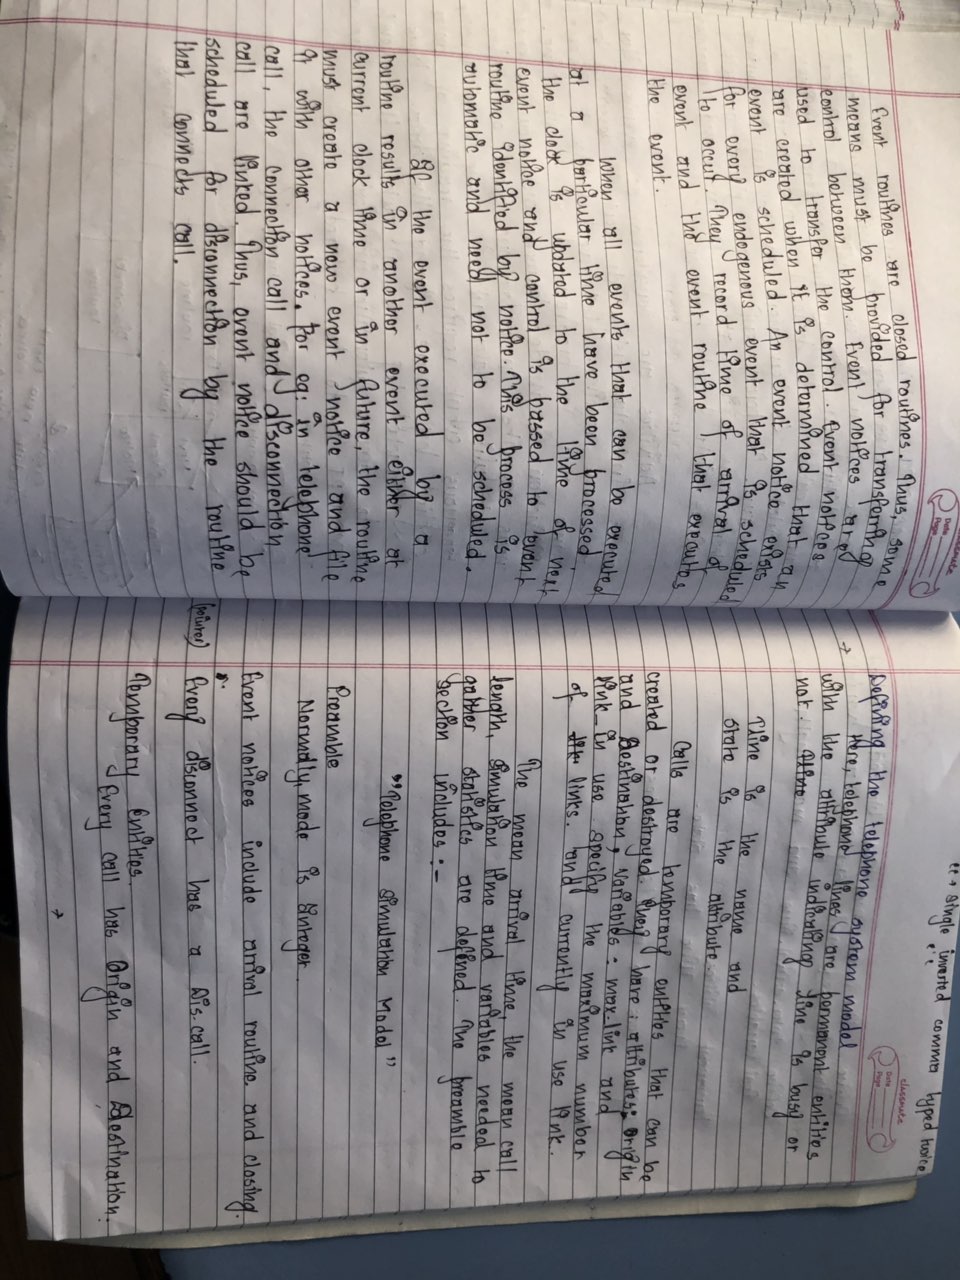 classmate
Date
Page
Event routines are closed routines. Thus, some
means must be provided for transferring
control between them. Event notices are
used to transfer the control. Event notices
are created when it is determined that an
event is scheduled. An event notice exists
for every endogenous event that is scheduled
to occur. They record time of arrival of
event and the event routine that executes
the event.
When all events that can be executed
at a particular time have been processed
the clock is updated to the time of next
event notice and control is passed to event
routine identified by notice. This process is
automatic and need not to be scheduled.
If the event executed by a
routine results in another event either at
current clock time or in future, the routine
must create a new event notice and file
it with other notices. For eg: in telephone
call, the connection call and disconnection
call are linked. Thus, event notice should be
scheduled for disconnection by the routine
that connects call.
" → single inverted comma typed twice
classmate
Date
Page
→ Defining the telephone system model
Here, telephone lines are permanent entities
with the attribute indicating line is busy or
not.
Tline is the name and
state is the attribute.
Calls are temporary entities that can be
created or destroyed. They have: attributes: origin
and Destination, Variables: max-link and
link_in use specify the maximum number
of links. and currently in use link.
The mean arrival time, the mean call
length, simulation time and variables needed to
gather statistics are defined. The preamble
section includes:-
"Telephone simulation Model"
Preamble
Normally, mode is Integer.
Event notices include arrival routine and closing.
Every disconnect has a Dis.call.
Temporary Entities.
Every call has Origin and Destination.
→